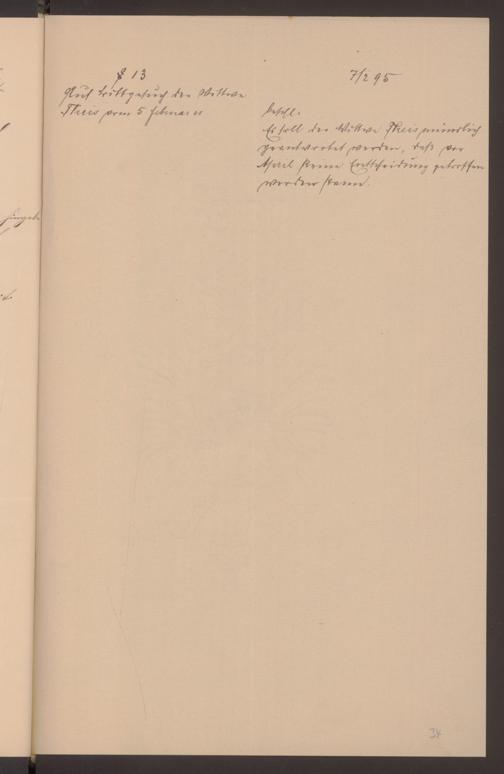 § 13
7/2 95
Auf Bittgesuch der Wittwe
Theis vom 5 Februar cr
beschl.
Es soll der Wittwe Theis mündlich
geantwortet werden, daß vor
April keine Entscheidung getroffen
werden kann.
34